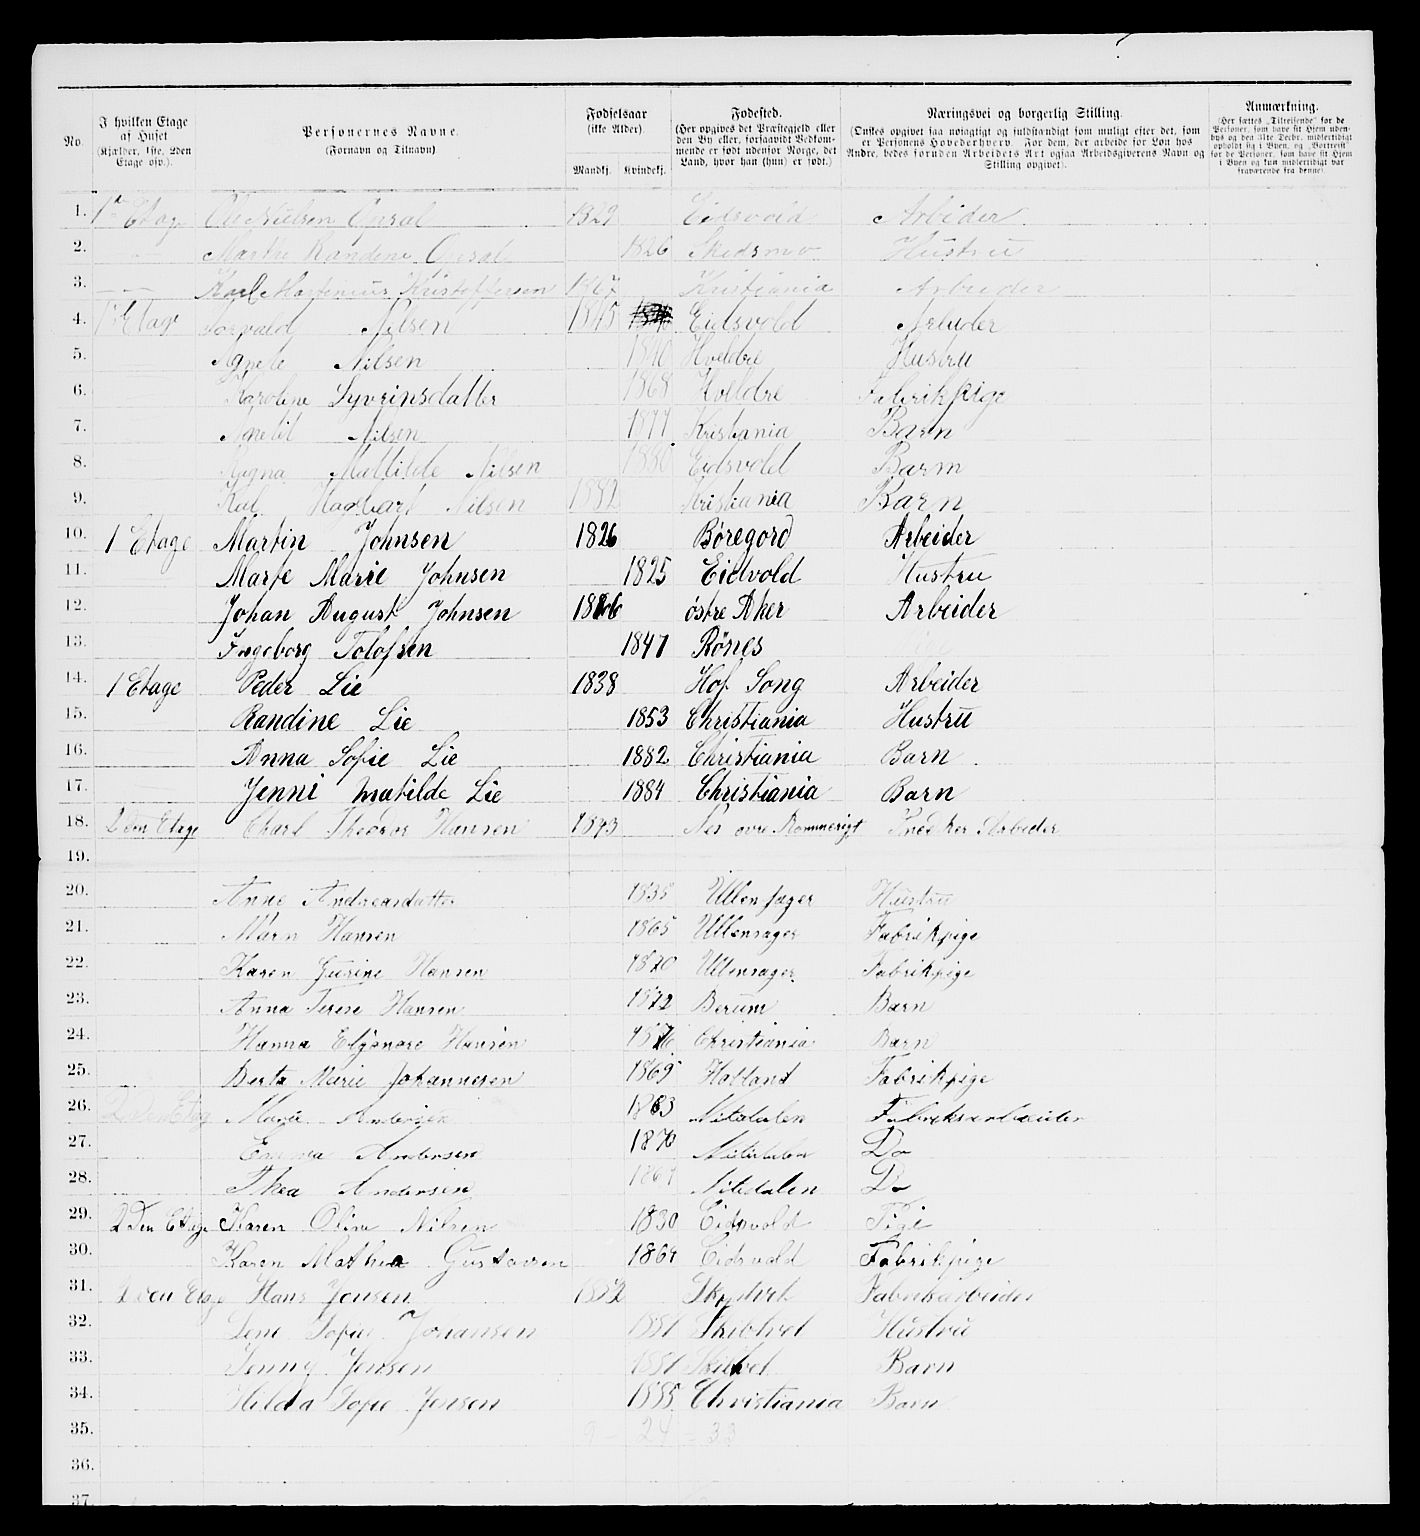 No. | I hvilken Etage af Huset (Kjælder, 1ste, 2den Etage osv.). | Personernes Navne. (Fornavn og Tilnavn) | Fødselsaar (ikke Alder). Mandkj. | Kvindekj. | Fødested. (Her opgives det Præstegjeld eller den By eller, forsaavidt Vedkommende er født udenfor Norge, det Land, hvor han (hun) er født.) | Næringsvei og borgerlig Stilling. (Ønskes opgivet saa nøiagtigt og fuldstændigt som muligt efter det, som er Personens Hovederhverv. For dem, der arbeide for Løn hos Andre, bedes foruden Arbeidets Art ogsaa Arbeidsgiverens Navn og Stilling opgivet). | Anmærkning. (Her sættes „Tilreisende" for de Personer, som have sit Hjem udenbys og den 31te Decbr. midlertidigt opholdt sig i Byen, og „Bortreist" for de Personer, som have sit Hjem i Byen og kun midlertidigt var fraværende fra denne).
1. 1ste Etage Ole Nielsen Opsal 1829 Eidsvold Arbeider
2. — Marthe Randene Opsal 1826 Skedsmo Hustru
3. — Karl Martinius Kristoffersen 1867 Kristiania Arbeider
4. 1 Etage Torvald Nilsen 1845 Eidsvold Arbeider
5. Agnete Nilsen 1840 Hoeldre Hustru
6. Karolene Syverinsdatter 1868 Hoeldre Fabrikpige
7. Anetil Nilsen 1877 Kristiania Barn
8. Mattilde Nilsen 1880 Eidsvold Barn
9. Kal Hagbart Nilsen 1882 Kristiania Barn
10. 1 Etage Martin Johnsen 1826 Børegord Arbeider
11. Marte Marie Johnsen 1825 Eidvold Hustru
12. Johan August Johnsen 1866 østre Aker Arbeider
13. Ingeborg Tolofsen 1847 Rønes
14. 1 Etage Peder Lie 1838 Hof Song Arbeider
15. Randine Lie 1853 Christiania Hustru
16. Anna Sofie Lie 1882 Christiania Barn
17. Jenni Matilde Lie 1884 Christiania Barn
18. 2den Etage Charl Theodor Hansen 1843 Nes øvre Rommerigt Snedker Arbeder
19.
20. Anne Andreasdatter 1838 Ullensager Hustru
21. Marn Hansen 1865 Ullensager Fabrikpige
22. Karen Gurine Hansen 1870 Ullensager Fabrikpige
23. Anna Terese Hansen 1872 Berum Barn
24. Hanna Elgonore Hansen 1876 Christiania Barn
25. Berta Marie Johannesen 1869 Holland Fabrikpige
26. 2Den Etag Marie Andersen 1863 Nitedalen Fabriksarbeider
27. Emma Andersen 1870 Nitedalen Do
28. Thea Andersen 1867 Nitedalen Do
29. 2Den Etage Karen Oline Nilsen 1830 Eidsvold Pige
30. Karen Mathea Gustavsen 1864 Eidsvold Fabrikpige
31. 2den Etage Hans Jensen 1852 Fabriksarbeider
32. Lene Sofie Johansen 1851 Skibtvet Hustru
33. Jenny Jensen 1881 Barn
34. Hilda Sofie Jensen 1885 Christiania Barn
35. 9 — 24 = 33
36.
37.